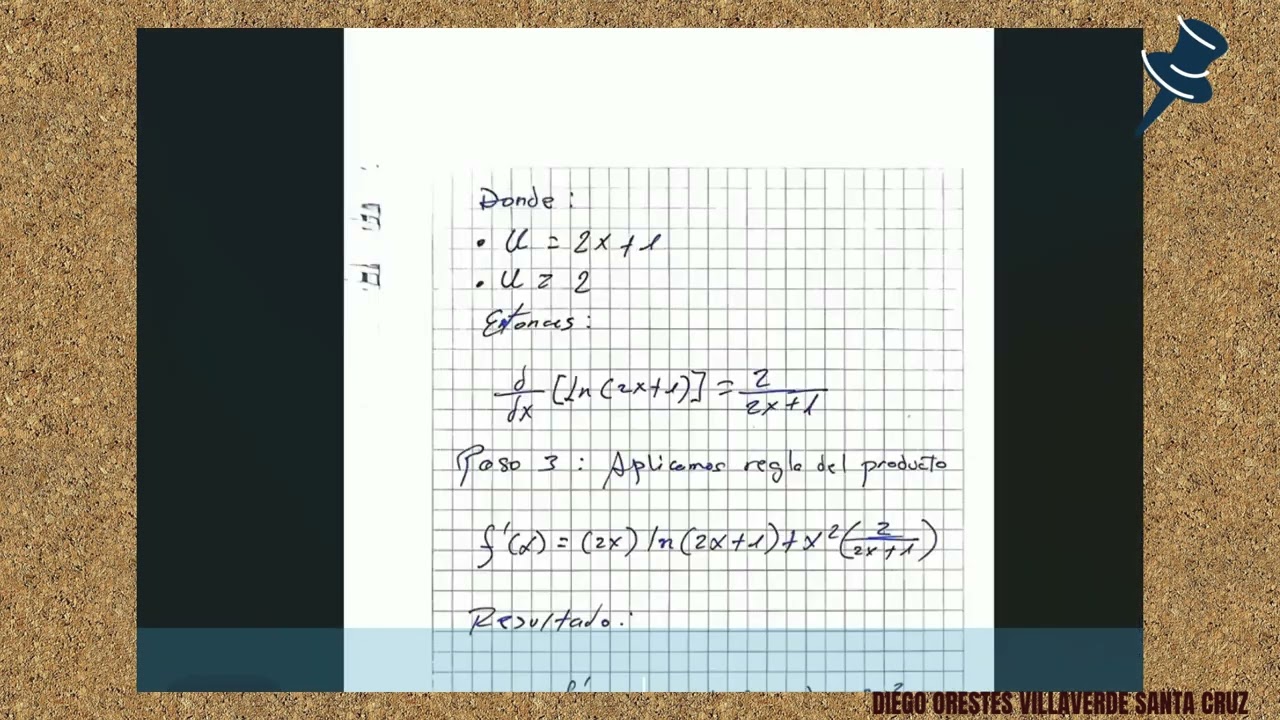 Donde :
• U = 2x+1
• U = 2
Entonces :
d/dx [ln (2x+1)] = 2/2x+1
Paso 3 : Aplicamos regla del producto
f'(x) = (2x) ln (2x+1) + x² (2/2x+1)
Resultado :
DIEGO ORESTES VILLAVERDE SANTA CRUZ